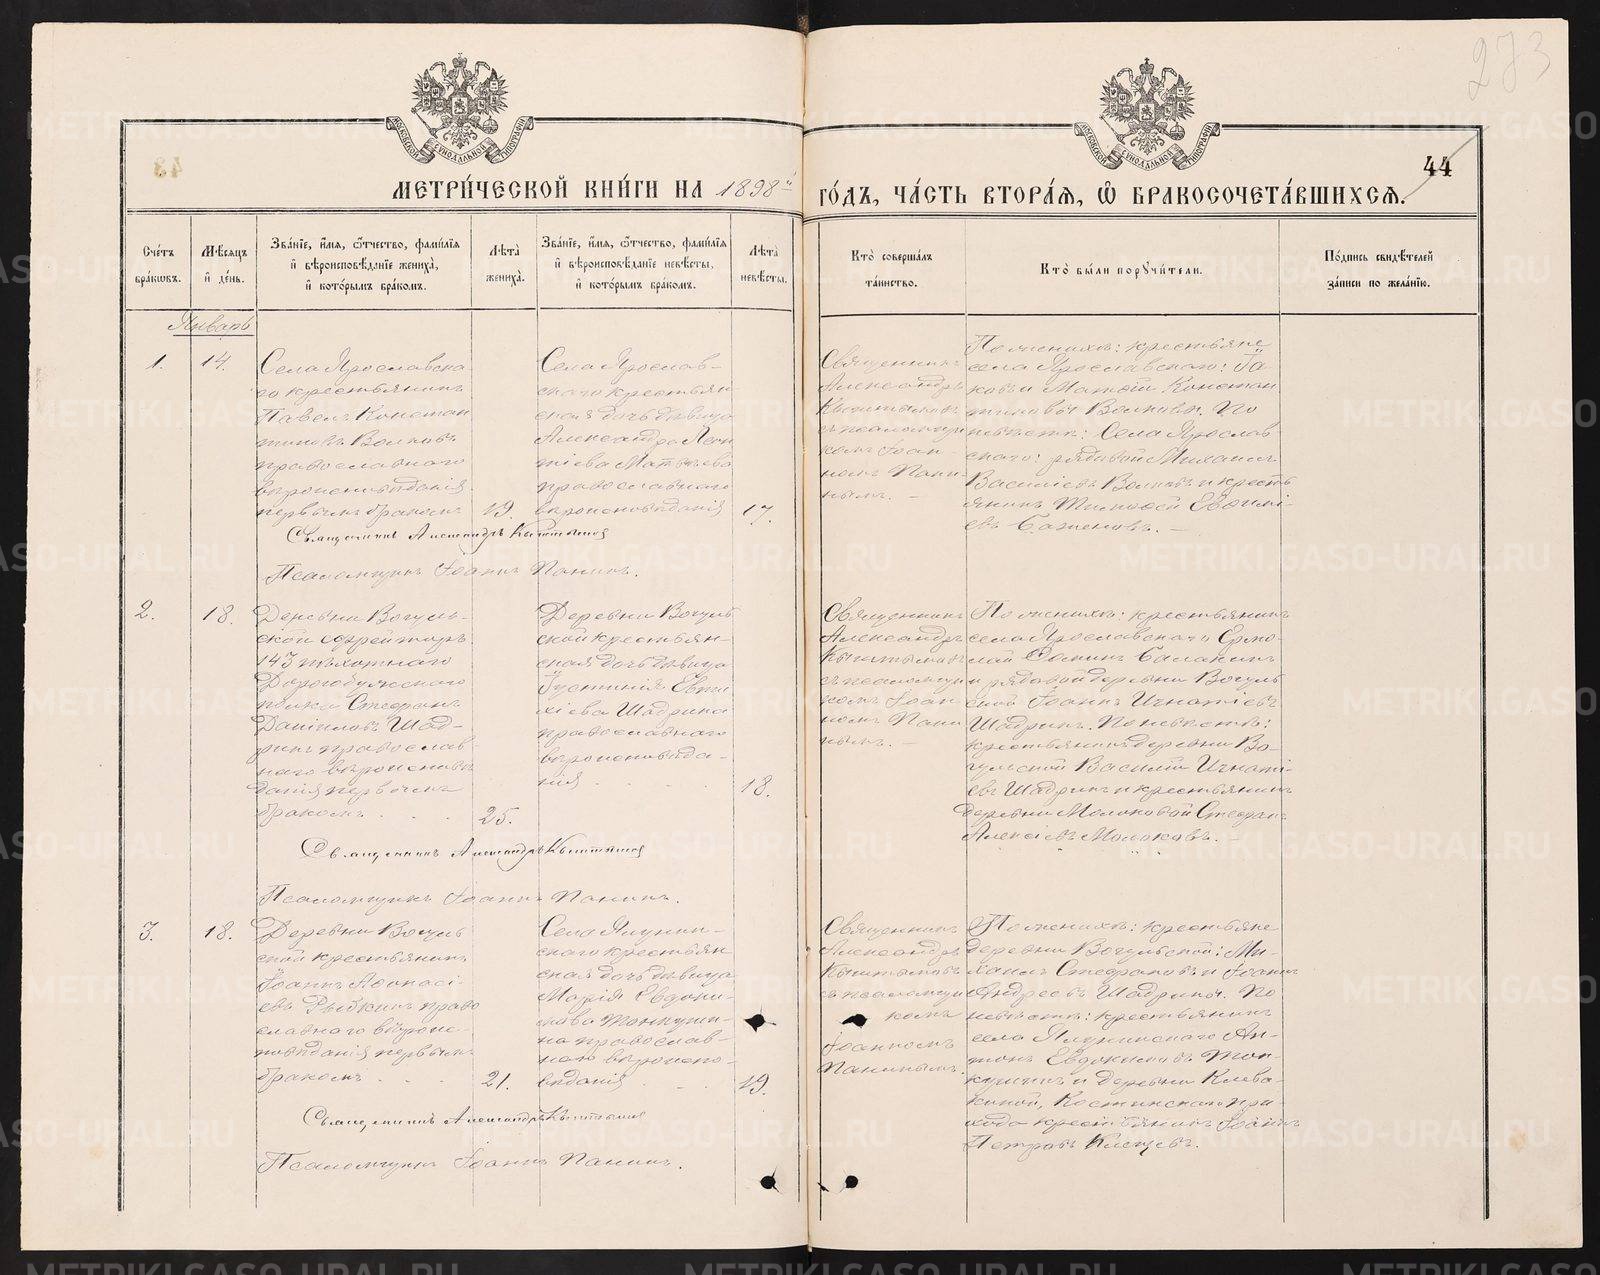 273
44
МОСКОВСКОЙ СѴНОДАЛЬНОЙ ТИПОГРАФІИ
МОСКОВСКОЙ СѴНОДАЛЬНОЙ ТИПОГРАФІИ
МЕТРИ́ЧЕСКОЙ КНИ́ГИ НА 1898й ГО́ДЪ, ЧА́СТЬ ВТОРА́Я, Ѡ БРАКОСОЧЕТА́ВШИХСЯ.
Сче́тъ бра́кѡвъ.
Мѣ́сяцъ и҆ де́нь.
Зва́нїе, и҆́мя, ѻ҆́тчество, фами́лїѧ
и҆ вѣроисповѣ́данїе жениха̀,
и҆ кото́рымъ бра́комъ.
Лѣ́та жениха̀.
Зва́нїе, и҆́мя, ѻ҆́тчество, фами́лїѧ
и҆ вѣроисповѣ́данїе невѣ́сты,
и҆ кото́рымъ бра́комъ.
Лѣ́та невѣ́сты.
Кто̀ соверша́лъ та́инство.
Кто̀ бы́ли порꙋчи́тели.
По́дпись свидѣ́телей за́писи по жела́нїю.
Январь
1.
14.
Села Ярославска-
го крестьянинъ
Павелъ Констан
тиновъ Волковъ
православнаго
вѣроисповѣданія
первымъ бракомъ
19.
Села Ярослав-
скаго крестьян
ская дочь дѣвица
Александра Леон
тіева Матвѣева
православнаго
вѣроисповѣданія
17.
Священникъ
Александръ
Кыштымовъ
съ псаломщи
комъ Іоан-
номъ Пани-
нымъ. –
По женихѣ: крестьяне
села Ярославскаго: Іа-
ковъ и Матѳій Констан
тиновы Волковы. По
невѣстѣ: Села Ярослав
скаго: рядовой Михаилъ
Василіевъ Волковъ и кресть
янинъ Тимоѳей Евѳимі-
евъ Баженовъ. –
Священникъ Александръ Кыштымовъ
Псаломщикъ Іоаннъ Панинъ.
2.
18.
Деревни Вогуль-
ской ефрейторъ
143 пѣхотнаго
Дорогобужскаго
полка Стефанъ
Даніиловъ Шад-
ринъ православ-
наго вѣроисповѣ
данія первымъ
бракомъ . . .
25.
Деревни Вогуль
ской крестьян
ская дочь дѣвица
Іустинія Евти
хіева Шадрина
православнаго
вѣроисповѣда-
нія . . .
18.
Священникъ
Александръ
Кыштымовъ
съ псаломщи
комъ Іоан-
номъ Пани
нымъ. –
По женихѣ: крестьянинъ
села Ярославскаго Ермо-
лай Ѳоминъ Балакинъ
и рядовой деревни Вогуль
ской Іоаннъ Игнатіевъ
Шадринъ. По невѣстѣ:
крестьянинъ деревни Во-
гульской Василій Игнаті-
евъ Шадринъ и крестьянинъ
деревни Молоковой Стефанъ
Алексіевъ Молоковъ. –
Священникъ Александръ Кыштымовъ
Псаломщикъ Іоаннъ Панинъ.
3.
18.
Деревни Вогуль
ской крестьянинъ
Іоаннъ Аѳонасі-
евъ Рычкинъ право
славнаго вѣроис-
повѣданія первымъ
бракомъ . .
21.
Села Ялунин-
скаго крестьян
ская дочь дѣвица
Марія Евдоки-
мова Тонкуши-
на православ-
наго вѣроиспо-
вѣданія . . .
19.
Священникъ
Александръ
Кыштымовъ
съ псаломщи
комъ
Іоанномъ
Панинымъ.
По женихѣ: крестьяне
деревни Вогульской: Ми-
хаилъ Стефановъ и Іоаннъ
Андреевъ Шадрины. По
невѣстѣ: крестьянинъ
села Ялунинскаго Ан-
тонъ Евдокимовъ Тон-
кушинъ и деревни Клева-
киной, Костинскаго при-
хода крестьянинъ Іоаннъ
Петровъ Клещевъ.
Священникъ Александръ Кыштымовъ
Псаломщикъ Іоаннъ Панинъ.
METRIKI.GASO-URAL.RU